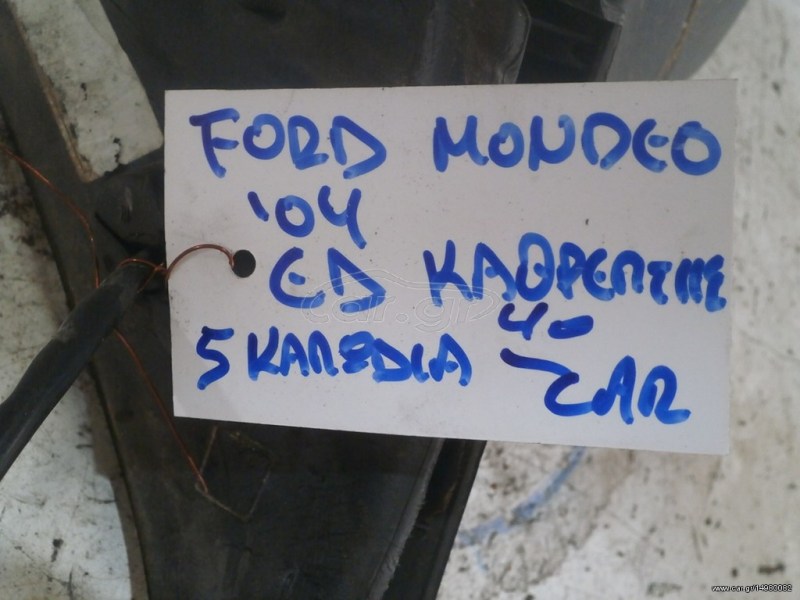 FORD MONDEO
'04
ΕΔ ΚΑΘΡΕΠΤΗΣ
5 ΚΑΛΩΔΙΑ 40
CAR
car.gr
www.car.gr/14963062